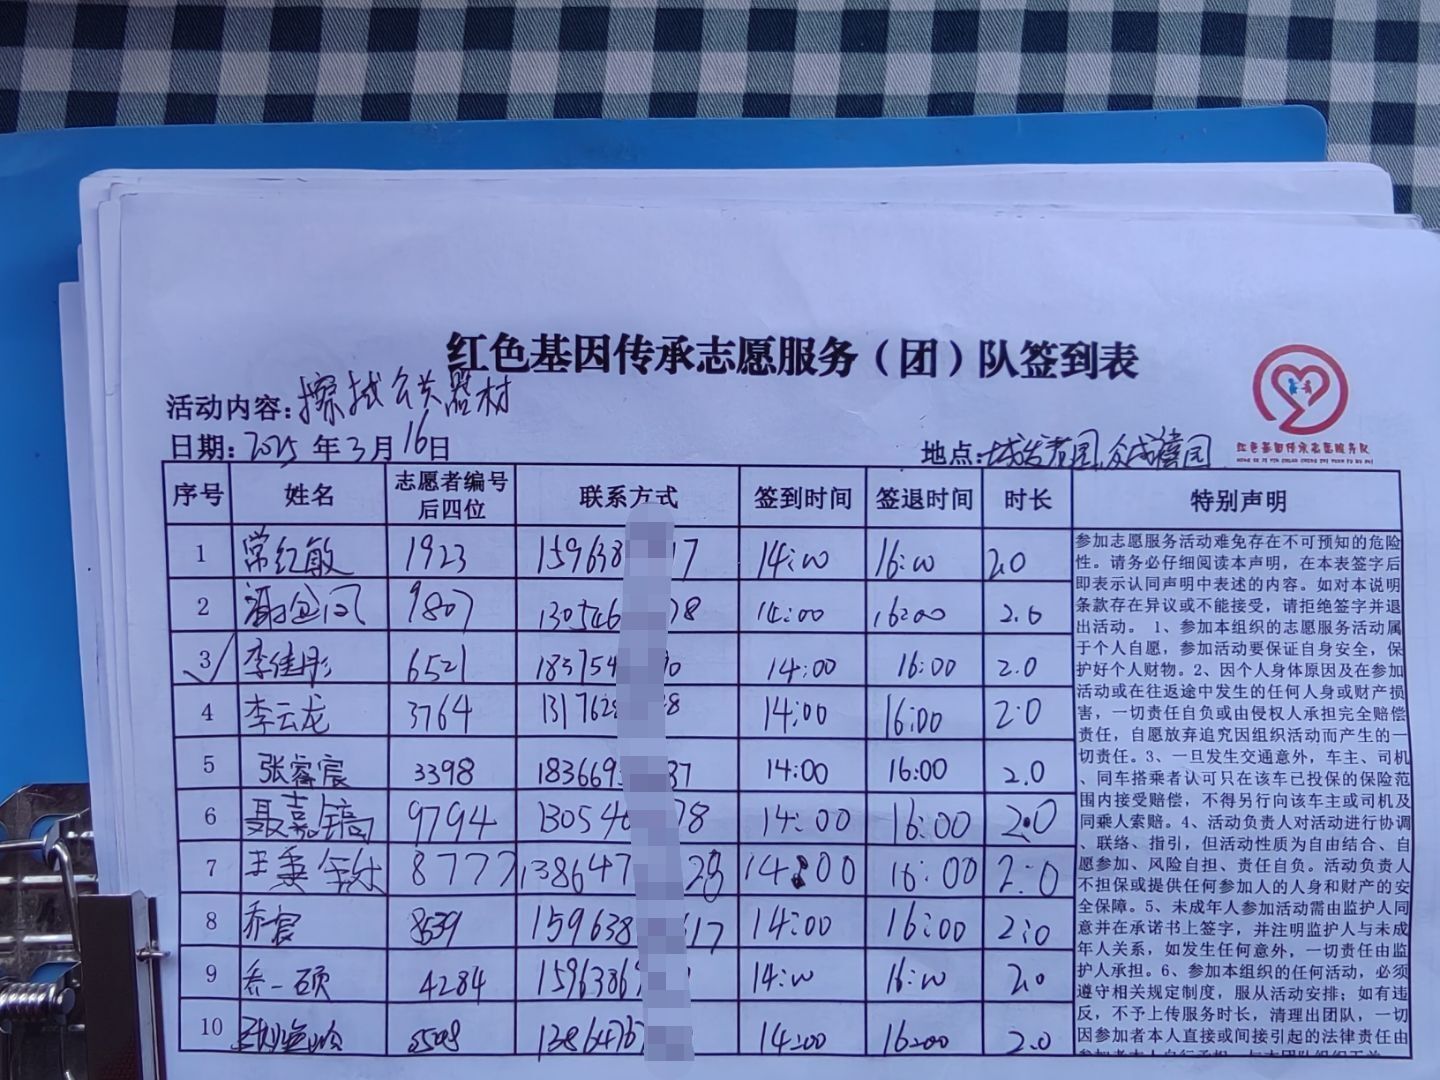 红色基因传承志愿服务（团）队签到表
活动内容：擦拭公共器材
日期：2025年3月16日
地点：城发花园，众成禧园
红色基因传承志愿服务队
序号 姓名 志愿者编号后四位 联系方式 签到时间 签退时间 时长 特别声明
1 常红敏 1923 159638 17 14:00 16:00 2.0
2 9807 130546 78 14:00 16:00 2.0
3 李佳彤 6521 183754 90 14:00 16:00 2.0
4 李云龙 3764 1317628 8 14:00 16:00 2.0
5 张睿宸 3398 183669 87 14:00 16:00 2.0
6 聂嘉镐 9794 13054 78 14:00 16:00 2.0
7 王 8777 138647 28 14:00 16:00 2:0
8 乔宸 8539 159638 617 14:00 16:00 2:0
9 乔一硕 4284 1596386 14:00 16:00 2.0
10 5508 1386476 14:00 16:00 2.0
参加志愿服务活动难免存在不可预知的危险
性。请务必仔细阅读本声明，在本表签字后
即表示认同声明中表述的内容。如对本说明
条款存在异议或不能接受，请拒绝签字并退
出活动。 1、参加本组织的志愿服务活动属
于个人自愿，参加活动要保证自身安全，保
护好个人财物。2、因个人身体原因及在参加
活动或在往返途中发生的任何人身或财产损
害，一切责任自负或由侵权人承担完全赔偿
责任，自愿放弃追究因组织活动而产生的一
切责任。3、一旦发生交通意外，车主、司机
、同车搭乘者认可只在该车已投保的保险范
围内接受赔偿，不得另行向该车主或司机及
同乘人索赔。4、活动负责人对活动进行协调
、联络、指引，但活动性质为自由结合、自
愿参加、风险自担、责任自负。活动负责人
不担保或提供任何参加人的人身和财产的安
全保障。5、未成年人参加活动需由监护人同
意并在承诺书上签字，并注明监护人与未成
年人关系，如发生任何意外，一切责任由监
护人承担。6、参加本组织的任何活动，必须
遵守相关规定制度，服从活动安排；如有违
反，不予上传服务时长，清理出团队，一切
因参加者本人直接或间接引起的法律责任由